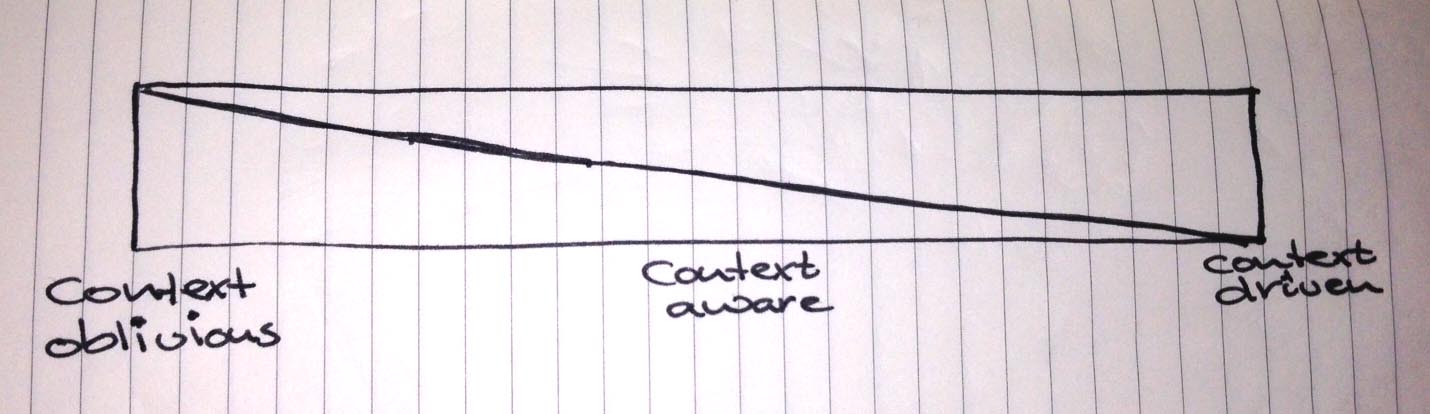 Context
oblivious
Context
aware
context
driven